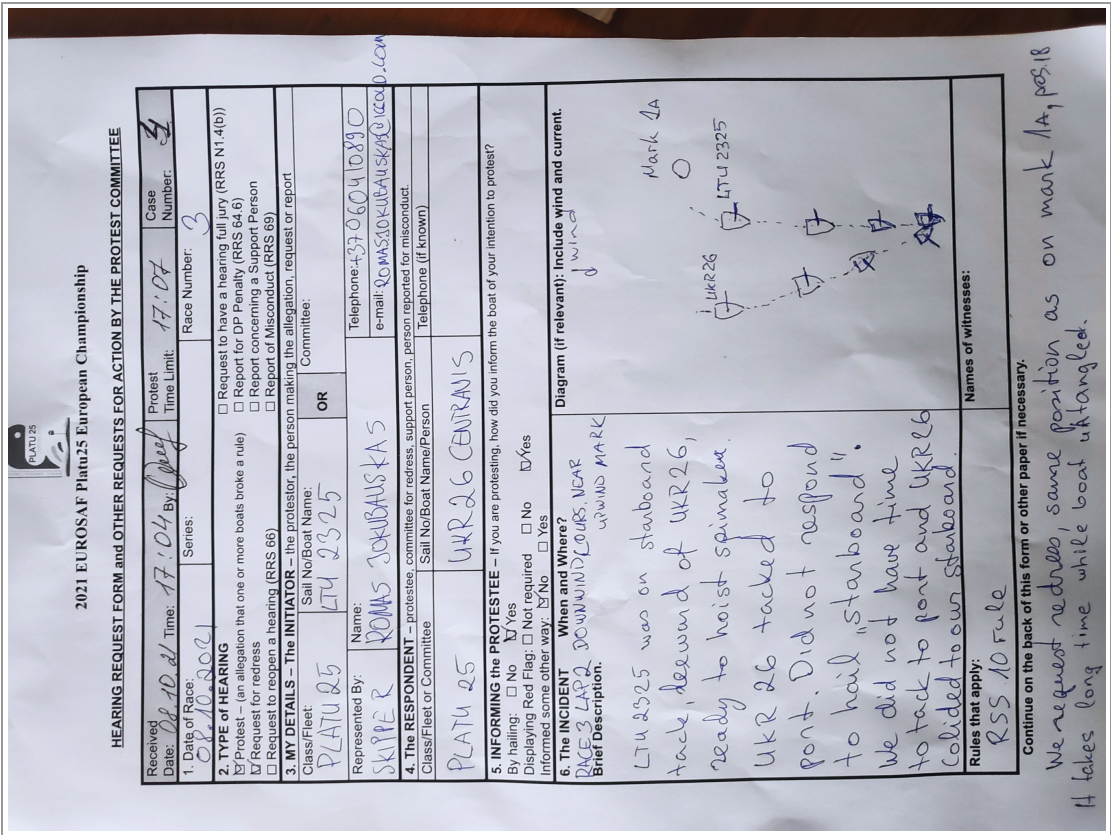 PLATU 25
2021 EUROSAF Platu25 European Championship
HEARING REQUEST FORM and OTHER REQUESTS FOR ACTION BY THE PROTEST COMMITTEE
Received
Date: 08.10.21 Time: 17:04 By:
Protest
Time Limit: 17:07
Case
Number:
1. Date of Race: 08.10.2021
Series:
Race Number: 3
2. TYPE of HEARING
☑ Protest – (an allegation that one or more boats broke a rule)
☑ Request for redress
☐ Request to reopen a hearing (RRS 66)
☐ Request to have a hearing full jury (RRS N1.4(b))
☐ Report for DP Penalty (RRS 64.6)
☐ Report concerning a Support Person
☐ Report of Misconduct (RRS 69)
3. MY DETAILS – The INITIATOR – the protestor, the person making the allegation, request or report
Class/Fleet:
PLATU 25
Sail No/Boat Name:
LTU 2325
OR
Committee:
Represented By:
SKIPPER
Name:
ROMAS JOKUBAUSKAS
Telephone: +37060410890
e-mail: ROMASJOKUBAUSKAS@ICLOUD.COM
4. The RESPONDENT – protestee, committee for redress, support person, person reported for misconduct.
Class/Fleet or Committee
PLATU 25
Sail No/Boat Name/Person
UKR26 CENTRAVIS
Telephone (if known)
5. INFORMING the PROTESTEE – If you are protesting, how did you inform the boat of your intention to protest?
By hailing: ☐ No ☑ Yes
Displaying Red Flag: ☐ Not required ☐ No ☑ Yes
Informed some other way: ☑ No ☐ Yes
6. The INCIDENT When and Where?
RACE 3 LAP2 DOWNWIND COURS, NEAR
UPWIND MARK
Brief Description.
LTU 2325 was on starboard
tack, leeward of UKR26,
ready to hoist spinaker
UKR 26 tacked to
port. Did not respond
to hail „starboard".
We did not have time
to tack to port and UKR26
Colided to our starboard.
Diagram (if relevant): Include wind and current.
↓ wind
UKR26
Mark 1A
LTU 2325
Rules that apply:
RSS 10 rule
Names of witnesses:
Continue on the back of this form or other paper if necessary.
We request redress, same position as on mark 1A, pos.18
It takes long time while boat untangled.